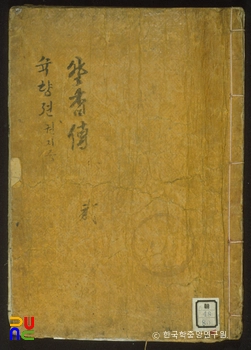 淑香傳
貳
슉향젼 권지
© 한국학중앙연구원